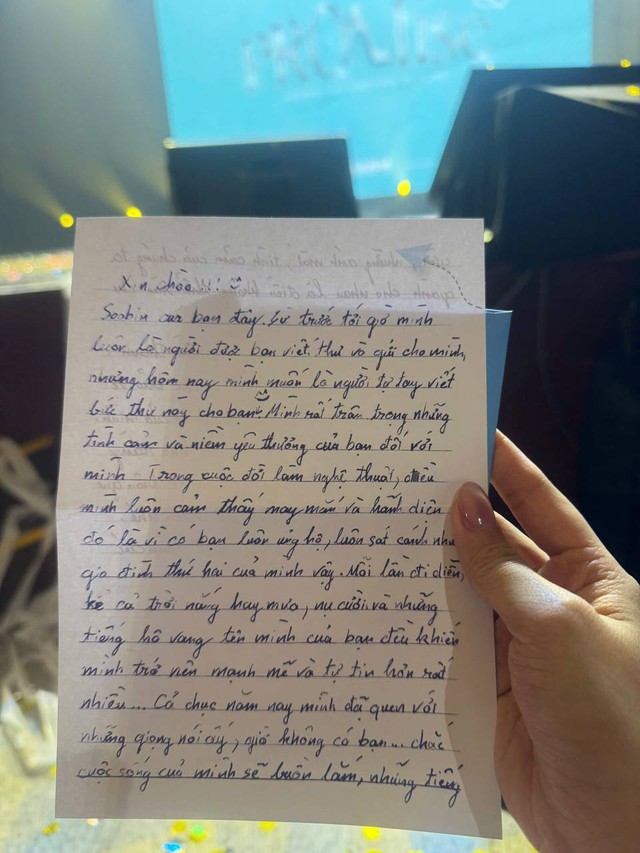 Xin chào !!
Soobin của bạn đây. Từ trước tới giờ mình
luôn là người được bạn viết thư và gửi cho mình,
nhưng hôm nay mình muốn là người tự tay viết
bức thư này cho bạn. Mình rất trân trọng những
tình cảm và niềm yêu thương của bạn đối với
mình. Trong cuộc đời làm nghệ thuật, điều
mình luôn cảm thấy may mắn và hãnh diện
đó là vì có bạn luôn ủng hộ, luôn sát cánh như
gia đình thứ hai của mình vậy. Mỗi lần đi diễn,
kể cả trời nắng hay mưa, nụ cười và những
tiếng hô vang tên mình của bạn đều khiến
mình trở nên mạnh mẽ và tự tin hơn rất
nhiều... Cả chục năm nay mình đã quen với
những giọng nói ấy, giờ không có bạn... chắc
cuộc sống của mình sẽ buồn lắm, những tiếng